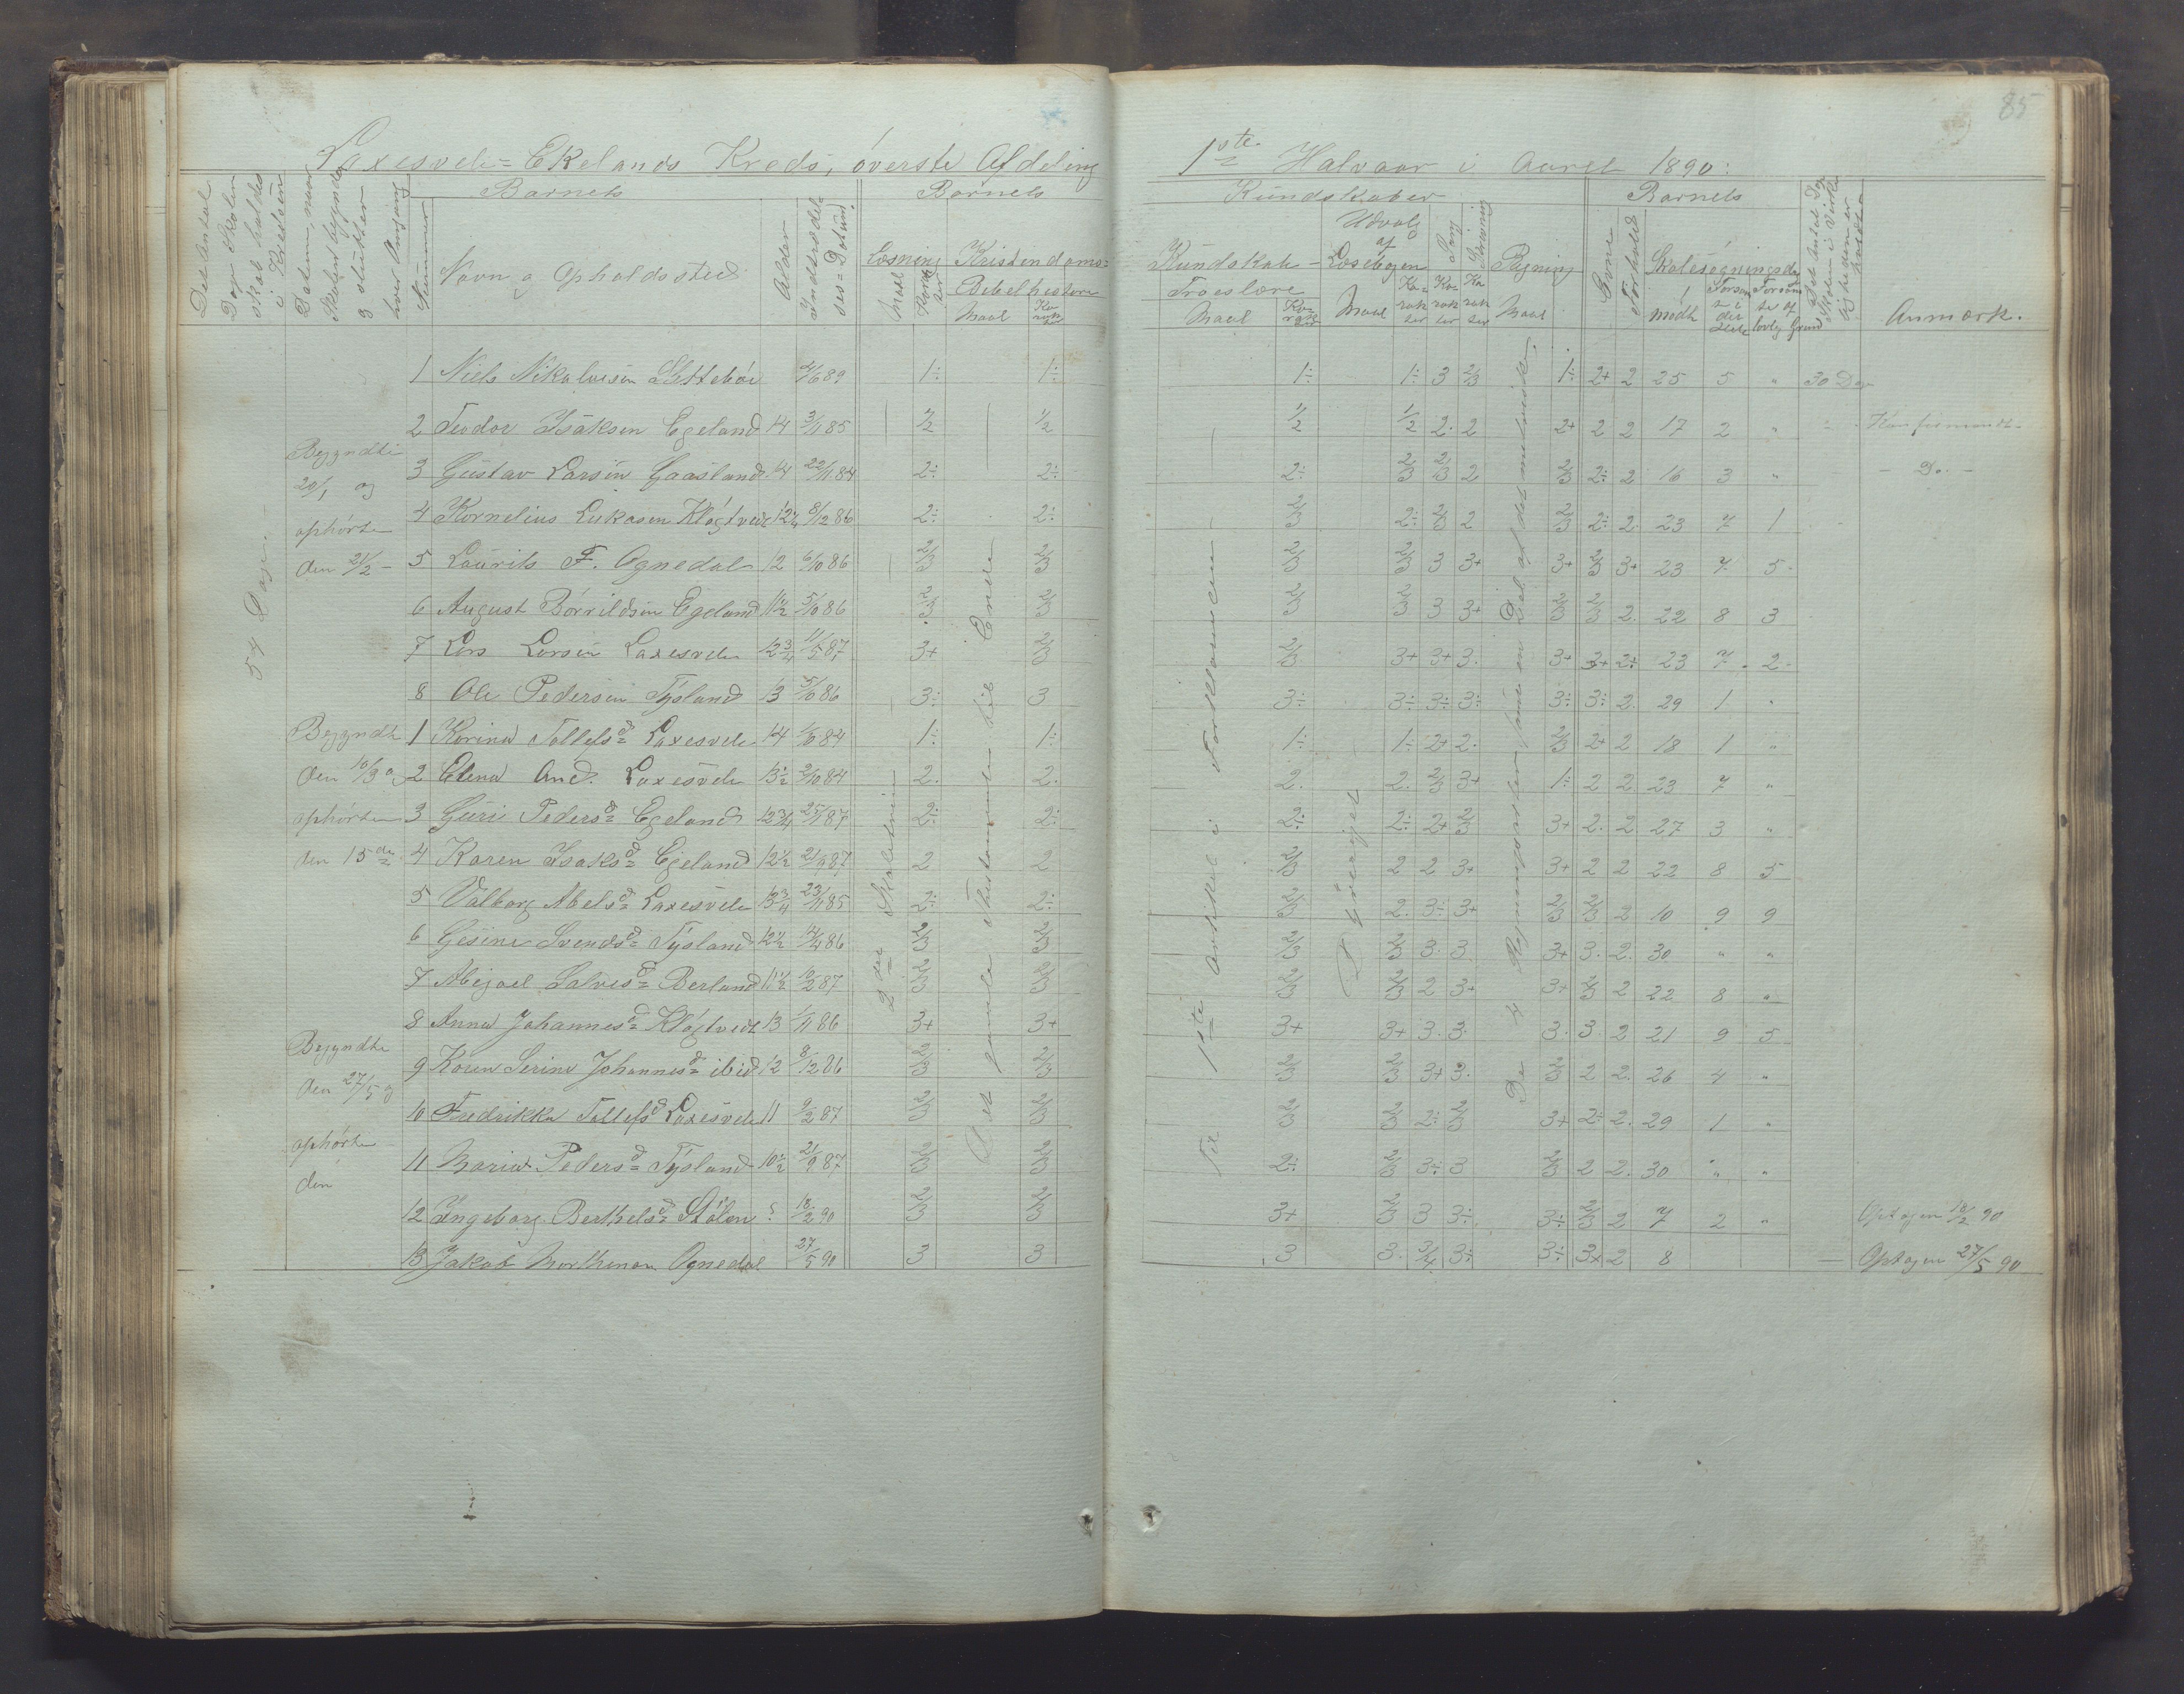 85
Laxesvele=Ekelands Kreds, överste Afdeling
1ste Halvaar i Aaret 1890:
Barnets Barnets
Kundskaber Barnets
Det Antal Dage Skolen skal holdes i Kredsen
Datum, naar Skolen begyndte og slutter hver Omgang
Nummer
Navn og Opholdssted
Alder
Indtrædelses=Datum
Læsning
Maal Karakter
Kristendoms=
Bibelhistorie
Maal Karakter
Kundskab
Troeslære
Maal Karakter
Udvalg af Læsebogen
Maal Karakter
Sang Karakter
Skrivning Karakter
Regning
Maal
Evne
Forhold
Skolesøgningsdage
mødt
Forsømte i det Hele
Forsømte af lovlig Grund
Anmærk.
54 Dage
Begyndte 20/1 og ophørte den 21/2
Begyndte den 10/3 og ophørte den 15de
Begyndte den 27/5 og ophørte den
2det Skoletrin
Det gamle Testamente til Ende
Til 1ste Artikel i Forklaringen
De 4 Regningsarter samt en Del af det
1 Niels Nikolaisen 4/6 89 1÷ 1÷ 1÷ 1÷ 3 2/3 1÷ 2+ 2 25 5 " 30 Dage
2 Teodor Isaksen Egeland 14 3/11 85 1/2 1/2 1/2 1/2 2. 2 2+ 2 2 17 2 " Konfirmandt
3 Gustav Larsen Gaasland 14 22/11 84 2÷ 2÷ 2÷ 2/3 2/3 2 2/3 2÷ 2 16 3 " Do.
4 Kornelius Lukasen Kløgtvedt 12 1/4 8/12 86 2÷ 2÷ 2/3 2÷ 2/3 2 2/3 2÷ 2. 23 7 1
5 Laurits F. Ognedal 12 6/10 86 2/3 2/3 2/3 2/3 3 3+ 3+ 2/3 3+ 23 7 5
6 August Börrildsen Egeland 11 1/2 5/10 86 2/3 2/3 2/3 2/3 3 3+ 2/3 2/3 2. 22 8 3
7 Lars Larsen Laxesvele 12 3/4 11/5 87 3+ 2/3 2/3 3+ 3+ 3. 3+ 3+ 2÷ 23 7. 2
8 Ole Pedersen Tysland 13 5/10 86 3÷ 3 3÷ 3÷ 3÷ 3÷ 3÷ 3÷ 2. 29 1 "
1 Korina Tollefsd Laxesvele 14 1/10 84 1÷ 1÷ 1÷ 1÷ 2+ 2. 2/3 2+ 2 18 1 "
2 Elena And. Laxesvele 13 1/2 2/10 84 2. 2. 2. 2. 2/3 3+ 1÷ 2 2 23 7 "
3 Guri Pedersd Egeland 12 3/4 25/1 87 2÷ 2÷ 2÷ 2÷ 2+ 2/3 3+ 2. 2 27 3 "
4 Karen Isaksd Egeland 12 1/2 21/9 87 2 2 2/3 2 2 3+ 3+ 2 2 22 8 5
5 Valborg Abelsd Laxesvele 13 3/4 23/11 85 2÷ 2÷ 2/3 2. 3÷ 3+ 2/3 2/3 2 10 9 9
6 Gesine Svendsd Tysland 12 1/2 4/4 86 2/3 2/3 2/3 2/3 3. 3. 3+ 3. 2. 30 " "
7 Abigael Salvesd Berland 11 1/2 10/2 87 2/3 2/3 2/3 2/3 2 3+ 3+ 2/3 2 22 8 "
8 Anna Johannesd Kløgtvedt 13 1/11 86 3+ 3+ 3+ 3+ 3. 3. 3. 3. 2 21 9 5
9 Karen Serine Johannesd ibid 12 8/12 86 2/3 2/3 2/3 2/3 3+ 3. 2/3 2 2. 26 4 "
10 Fredrikka Tollefsd Laxesvele 11 9/2 87 2/3 2/3 2/3 2/3 2÷ 2/3 3+ 2÷ 2. 29 1 "
11 Maria Pedersd Tysland 10 1/2 21/9 87 2/3 2/3 2÷ 2/3 3÷ 3 2/3 2 2. 30 " "
12 Ingeborg Berthelsd Stölen ? 18/2 90 2/3 2/3 3+ 2/3 3 3÷ 3÷ 2/3 2 7 2 " Optagen 18/2 90
13 Jakob Morthenson Ognedal 27/5 90 3 3 3 3. 3/4 3÷ 3÷ 3+ 2 8 — Optagen 27/5 90